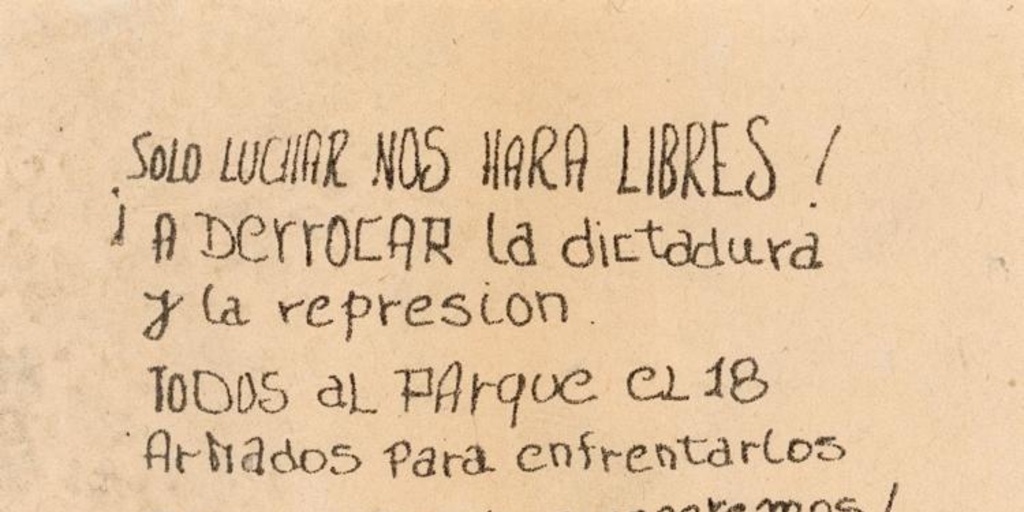 SOLO LUCHAR NOS HARA LIBRES !
¡ A DerrOCAR la dictadura
y la represion.
TODOS aL PArque eL 18
ArMados para enfrentarlos